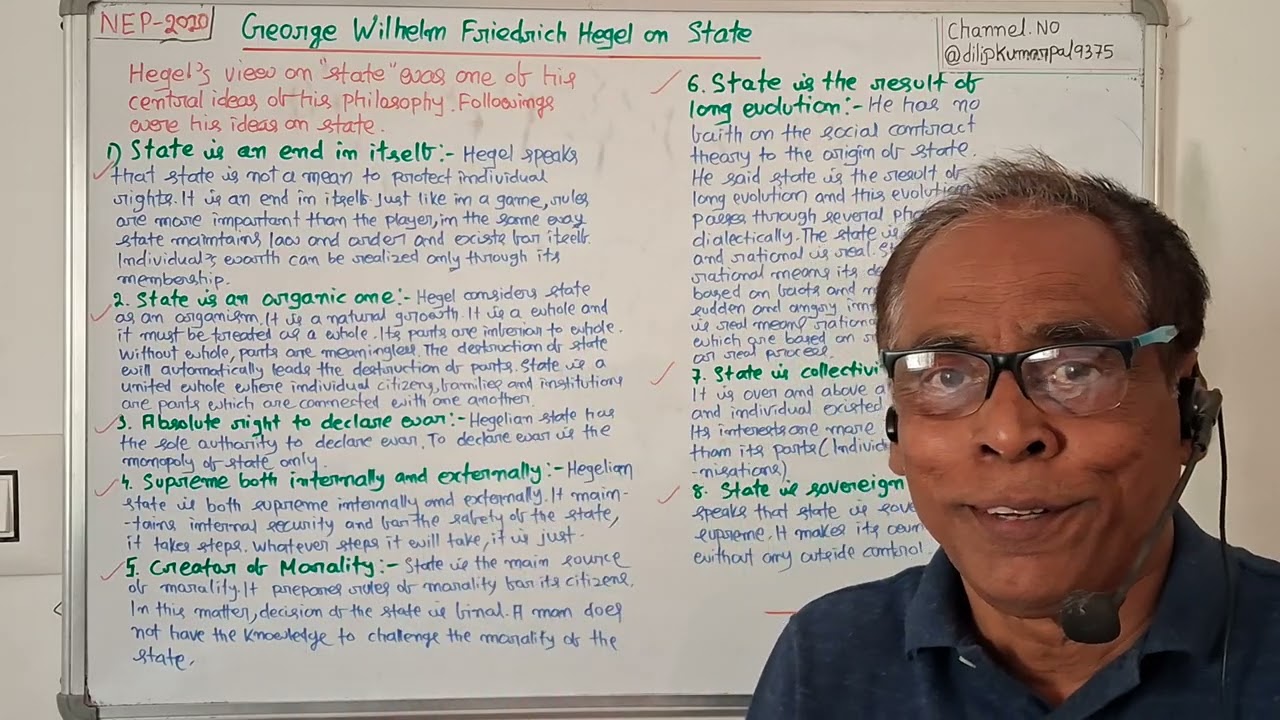 NEP-2020
George Wilhelm Friedrich Hegel on State
Channel. NO
@dilipkumarpal9375
Hegel's view on "state" was one of his
central ideas of his philosophy. Followings
were his ideas on state.
1) State is an end in itself:- Hegel speaks
that state is not a mean to protect individual
rights. It is an end in itself. Just like in a game, rules
are more important than the player, in the same way
state maintains law and order and exists for itself.
Individual's worth can be realized only through its
membership.
2. State is an organic one:- Hegel considers state
as an organism. It is a natural growth. It is a whole and
it must be treated as a whole. Its parts are inferior to whole.
Without whole, parts are meaningless. The destruction of state
will automatically leads the destruction of parts. State is a
united whole where individual citizens, families and institutions
are parts which are connected with one another.
3. Absolute right to declare war:- Hegelian state has
the sole authority to declare war. To declare war is the
monopoly of state only.
4. Supreme both internally and externally:- Hegelian
state is both supreme internally and externally. It main-
-tains internal security and for the safety of the state,
it takes steps. Whatever steps it will take, it is just.
5. Creator of Morality:- State is the main source
of morality. It prepares rules of morality for its citizens.
In this matter, decision of the state is final. A man does
not have the knowledge to challenge the morality of the
state.
6. State is the result of
long evolution:- He has no
faith on the social contract
theory to the origin of state.
He said state is the result of
long evolution and this evolution
passes through several
dialectically. The state is
and rational is real.
rational means its
based on facts and
sudden and angry
is real means
which are based on
as real process.
7. State is
It is over and above
and individual existed
Its interests are more
than its parts
-nisations)
8. State is sovereign
speaks that state is
supreme. It makes its own
without any outside control.